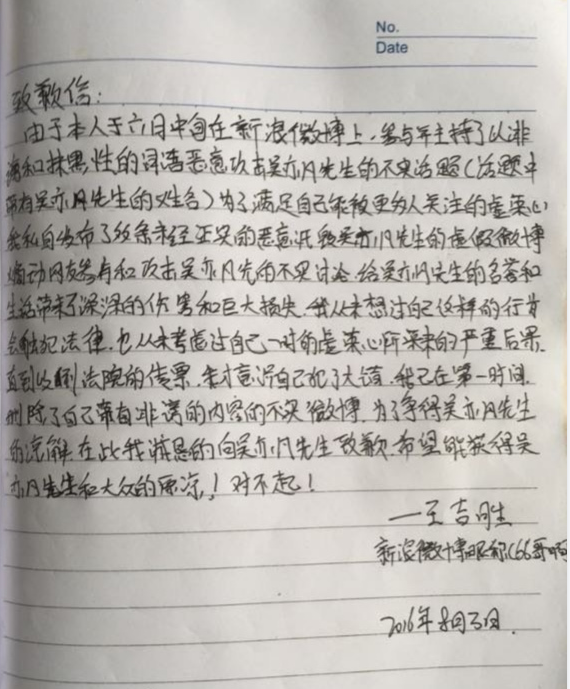 No.
Date
致歉信:
由于本人于六月中旬在新浪微博上,参与并主持了以诽
谤和抹黑性的词语恶意攻击吴亦凡先生的不实话题(话题中
带有吴亦凡先生的姓名)为了满足自己能被更多人关注的虚荣心,
我私自发布了多条未经证实的恶意诋毁吴亦凡先生的虚假微博
煽动网友参与和攻击吴亦凡先生的不实讨论.给吴亦凡先生的名誉和
生活带来了深深的伤害和巨大损失.我从未想过自己这样的行为
会触犯法律.也从未考虑过自己一时的虚荣心所带来的严重后果.
直到收到法院的传票.我才意识自己犯了大错.我已在第一时间
删除了自己带有诽谤的内容的不实微博.为了争得吴亦凡先生
的谅解.在此我诚恳的向吴亦凡先生致歉.希望能获得吴
亦凡先生和大众的原谅!对不起!
—王吉胜
新浪微博昵称(66哥啊
2016年8月3日.